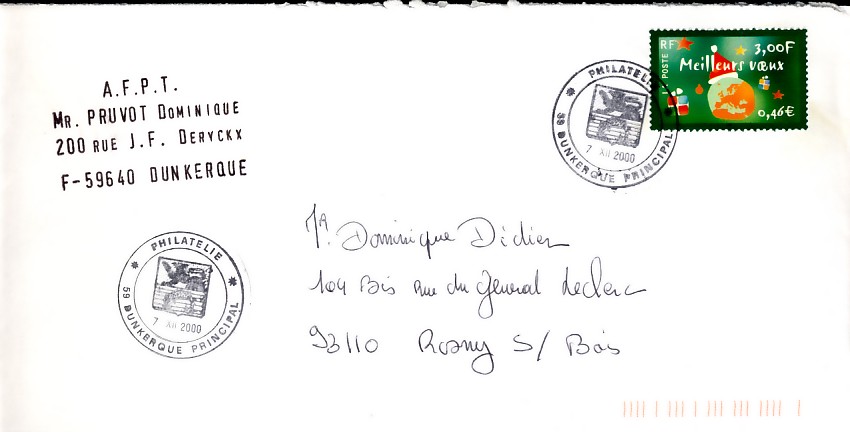 A.F.P.T.
MR. PRUVOT DOMINIQUE
200 RUE J.F. DERYCKX
F-59640 DUNKERQUE
RF
LA POSTE
3,00F
Meilleurs vœux
0,46€
PHILATELIE
7 XII 2000
59 DUNKERQUE PRINCIPAL
Dominique Didier
104 Bis rue du General Leclerc
93110 Rosny S/ Bois
PHILATELIE
7 XII 2000
59 DUNKERQUE PRINCIPAL